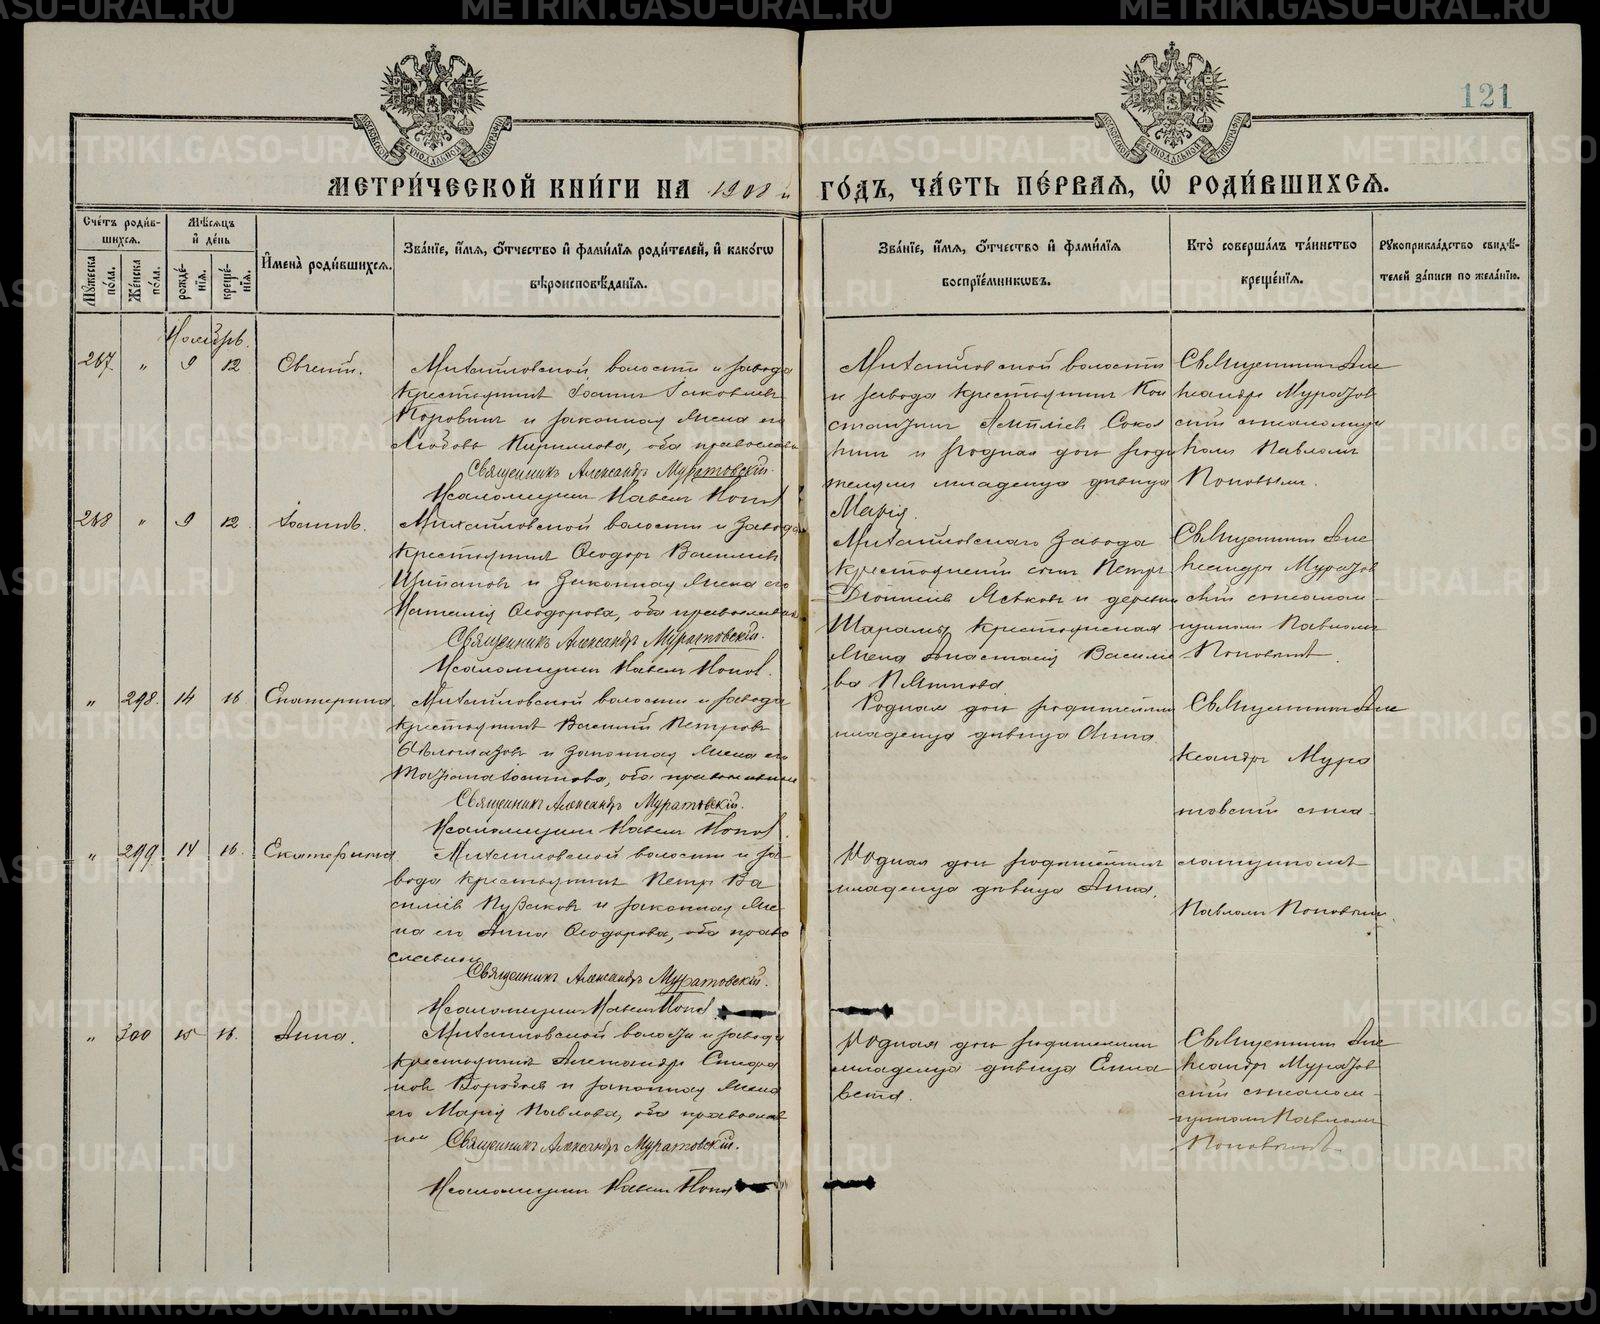 121
МЕТРИ́ЧЕСКОЙ КНИ́ГИ НА 1908 й ГО́ДЪ, ЧА́СТЬ ПЕ́РВАЯ, Ѡ РОДИ́ВШИХСЯ.
Сче́тъ роди́в-
шихся.
Мѣ́сяцъ
и҆ де́нь
Мꙋ́жеска по́ла.
Же́нска по́ла.
рожде́-
нїѧ.
креще́-
нїѧ.
И҆мена̀ роди́вшихся.
Зва́нїе, и҆́мѧ, ѻ҆́тчество и҆ фами́лїѧ роди́телей, и҆ како́гѡ
вѣроисповѣ́данїѧ.
Зва́нїе, и҆́мѧ, ѻ҆́тчество и҆ фами́лїѧ
воспрїе́мникѡвъ.
Кто̀ соверша́лъ та́инство
креще́нїѧ.
Рꙋкоприкла́дство свидѣ́-
телей за́писи по жела́нїю.
Ноябрь.
267 " 9 12 Евгений.
Михайловской волости и завода
крестьянинъ Іоаннъ Іаковлевъ
Коровинъ и законная жена его
Любовь Кириллова, оба православн
Священникъ Александръ Муратовскій.
Псаломщикъ Павелъ Поповъ
Михайловской волости
и завода крестьянинъ Кон
стантинъ Соко
и родная дочь роди
телей младенца дѣвица
Марія.
Священникъ Але
ксандръ Муратов
скій съ псаломщи
комъ Павломъ
Поповымъ.
268 " 9 12 Іоаннъ.
Михайловской волости и завода
крестьянинъ Ѳеодоръ Василіевъ
и законная жена его
Наталія Ѳеодорова, оба православн
Священникъ Александръ Муратовскій.
Псаломщикъ Павелъ Поповъ.
Михайловскаго завода
крестьянскій сынъ Петръ
Діонисіевъ и деревни
Шарамы крестьянская
жена Анастасія Василіе
ва
Священникъ Але
ксандръ Муратов
скій съ псалом-
щикомъ Павломъ
Поповымъ.
" 298. 14 16 Екатерина.
Михайловской волости и завода
крестьянинъ Василій Петровъ
Бѣлоглазовъ и законная жена его
Татіана Іоаннова, оба православные
Священникъ Александръ Муратовскій.
Псаломщикъ Павелъ Поповъ.
Родная дочь родителей
младенца дѣвица Анна
Священникъ Але
ксандръ Мура
товскій съ пса-
ломщикомъ
Павломъ Поповымъ.
" 299. 14 16. Екатерина
Михайловской волости и за-
вода крестьянинъ Петръ Ва
силіевъ Пузаковъ и законная же-
на его Анна Ѳеодорова, оба право
славные
Священникъ Александръ Муратовскій.
Псаломщикъ Павелъ Поповъ.
Родная дочь родителей
младенца дѣвица Анна.
" 300 15 16. Анна.
Михайловской волости и завода
крестьянинъ Александръ Стефа
новъ Воробьевъ и законная жена
его Марія Павлова, оба православ
ной
Священникъ Александръ Муратовскій.
Псаломщикъ Павелъ Поповъ
Родная дочь родителей
младенца дѣвица Елиса
вета.
Священникъ Але
ксандръ Муратов
скій съ псалом-
щикомъ Павломъ
Поповымъ